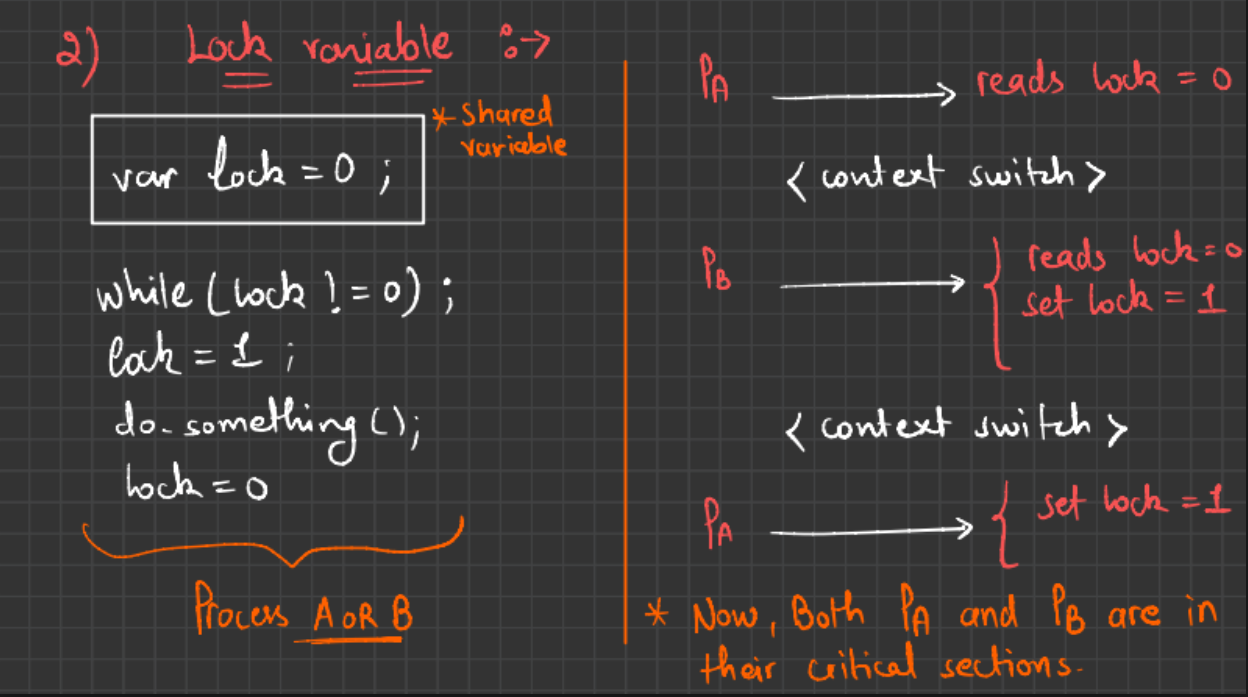 2) Lock variable :→
* Shared
variable
var lock = 0 ;
while (lock != 0) ;
lock = 1 ;
do_something ();
lock = 0
Process A OR B
PA → reads lock = 0
< context switch >
PB → { reads lock = 0
set lock = 1
< context switch >
PA → { set lock = 1
* Now, Both PA and PB are in
their critical sections.